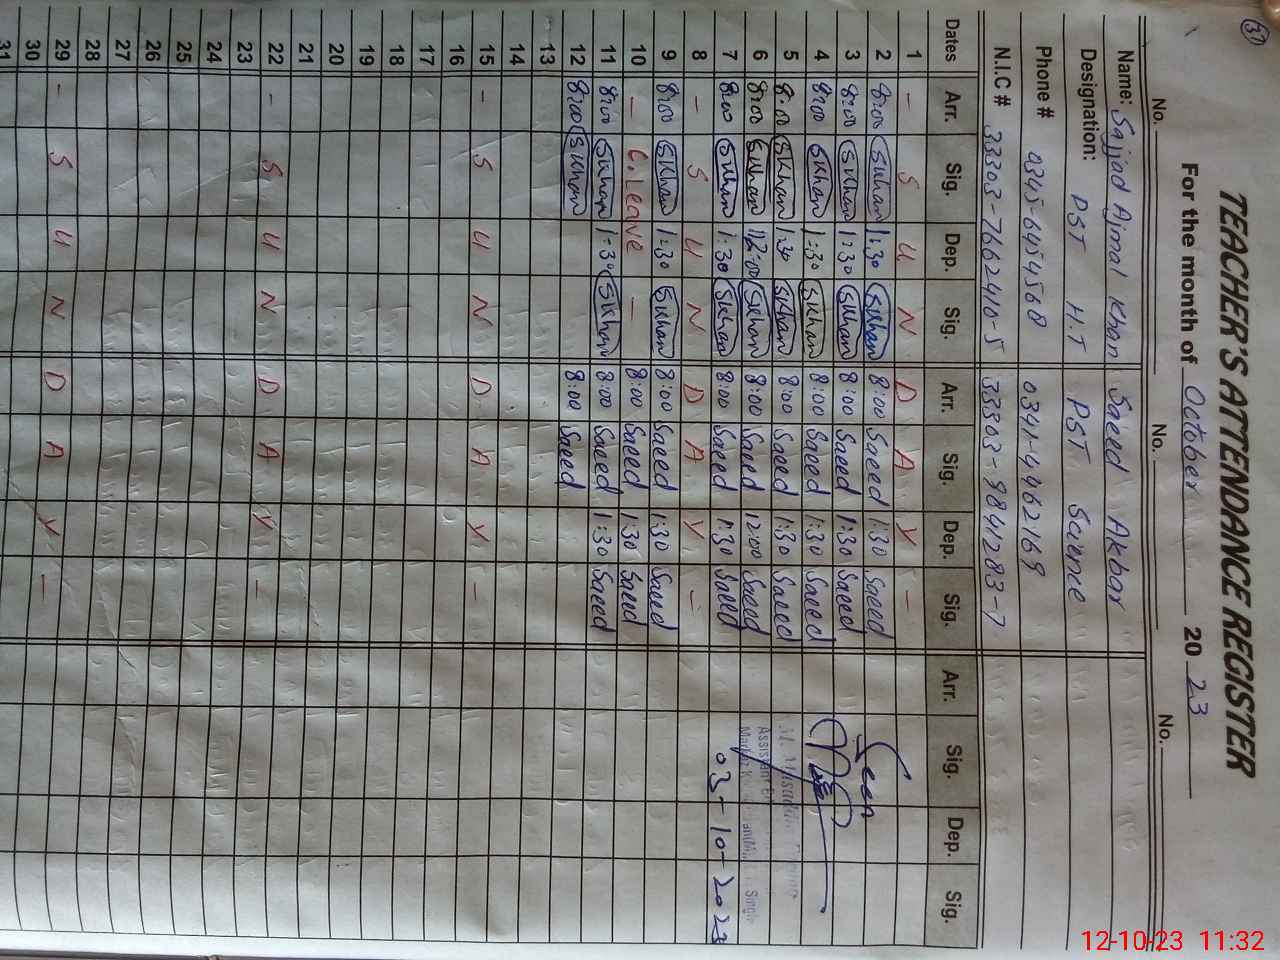 37
TEACHER'S ATTENDANCE REGISTER
For the month of October 20 23
No. No. No.
Name: Sajjad Ajmal Khan Saeed Akbar
Designation: PST H.T PST Science
Phone # 0345-6454568 0341-4462169
N.I.C # 33303-7662410-5 33303-9841283-7
Dates Arr. Sig. Dep. Sig. Arr. Sig. Dep. Sig. Arr. Sig. Dep. Sig.
1 - S U N D A Y -
2 8:00 SKhan 1:30 SKhan 8:00 Saeed 1:30 Saeed
3 8:00 SKhan 1:30 SKhan 8:00 Saeed 1:30 Saeed
4 8:00 SKhan 1:30 SKhan 8:00 Saeed 1:30 Saeed
5 8:00 SKhan 1:30 SKhan 8:00 Saeed 1:30 Saeed
6 8:00 SKhan 12:00 SKhan 8:00 Saeed 12:00 Saeed
7 8:00 SKhan 1:30 SKhan 8:00 Saeed 1:30 Saeed
8 - S U N D A Y -
9 8:00 SKhan 1:30 SKhan 8:00 Saeed 1:30 Saeed
10 - C.Leave - 8:00 Saeed 1:30 Saeed
11 8:00 SKhan 1:30 SKhan 8:00 Saeed 1:30 Saeed
12 8:00 SKhan 8:00 Saeed
13
14
15 - S U N D A Y -
16
17
18
19
20
21
22 - S U N D A Y -
23
24
25
26
27
28
29 - S U N D A Y -
30
31
Seen
Assistant
03-10-2023
12-10-23 11:32